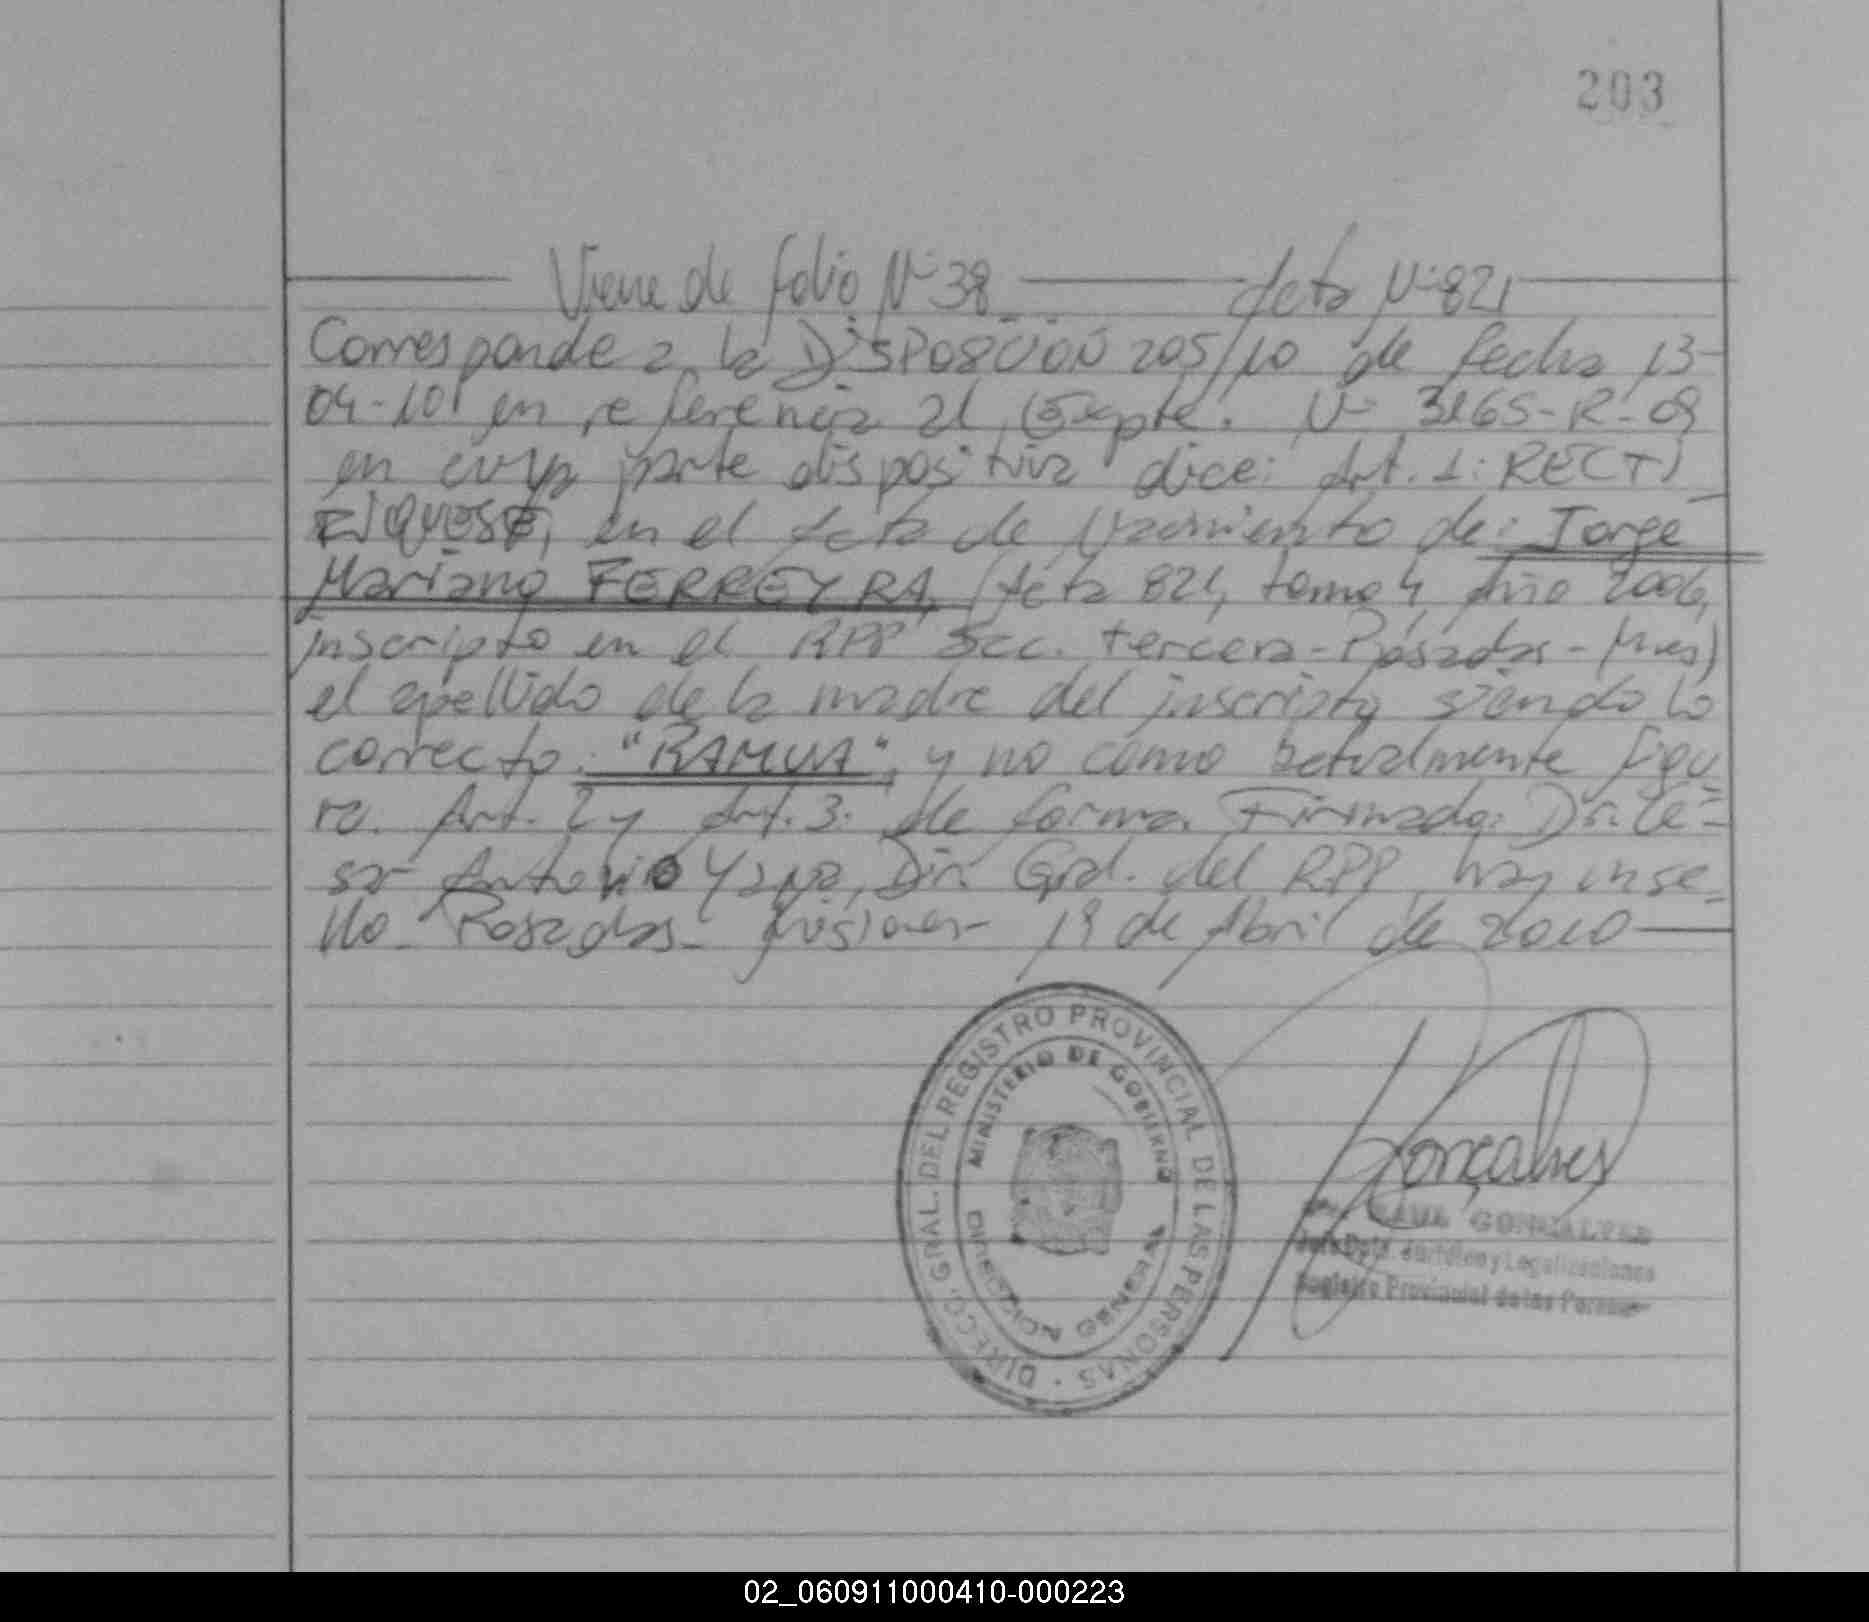 203
Viene de folio N° 38 Acta N° 821
Corresponde a la DISPOSICION 205/10 de fecha 13-
04-10 en referencia al Expte. N° 3165-R-09
en cuya parte dispositiva dice: Art. 1: RECTI
FIQUESE, en el Acta de Nacimiento de: Jorge
Mariano FERREYRA, (Acta 821, tomo 4, Año 2006,
inscripto en el RPP Secc. tercera-Posadas-Mnes)
el apellido de la madre del inscripto siendo lo
correcto: "RAMUA", y no como actualmente figu
ra. Art. 2 y Art. 3: de forma. Firmado: Dr. Cé-
sar Antonio Yaya, Dir. Gral. del RPP, hay un se-
llo. Posadas-Misiones- 19 de Abril de 2010
DIRECC. GRAL. DEL REGISTRO PROVINCIAL DE LAS PERSONAS
MINISTERIO DE GOBIERNO
DIRECCION GENERAL
Gonçalves
GONCALVES
Jefe Dpto. Jurídico y Legalizaciones
Registro Provincial de las Personas
02_060911000410-000223